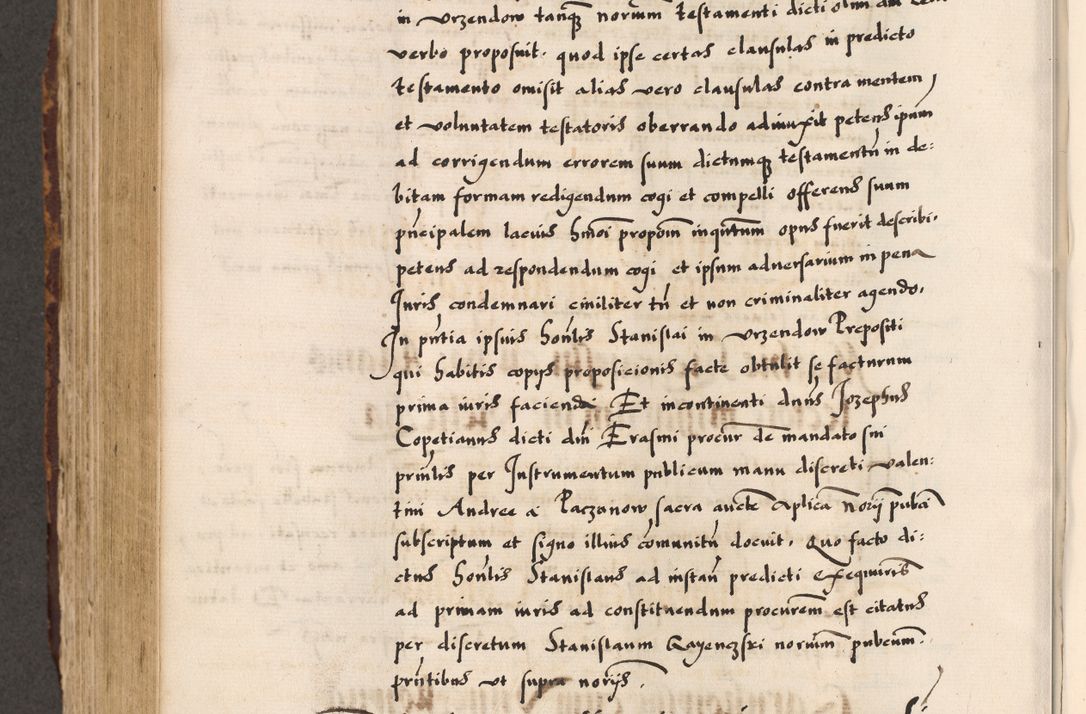 in Urzendow tanq̃ norium testamenti dicti olim
verbo proposuit. quod ipse certas clausulas in predicto
testamento omisit alias vero clausulas contra mentem
et voluntatem testatoris oberrando adiunxit petens ipsum
ad corrigendum errorem suum dictumq̃ testamentũ in de:
bitam formam redigendum cogi et compelli offerens suum
pñcipalem lacius hm̃oi propom̃ inquñtum opus fuerit describi.
petens ad respondendum cogi et ipsum adversarium in pena
Juris condemnari ciuiliter tñ et non criminaliter agendo.
In pñtia ipsius honlis Stanislai in Urzendow Prepositi
qui habitis copys proposicionis facte obtulit se facturum
prima iuris facienda Et incontinenti dnus Jozephus
Copetianus dicti dni Erasmi procur de mandato sui
prinlis per Instrumentum publicum manu discreti Valen:
tini Andree a Paczanow, sacra aucte Aplica norij pubci
subscriptum et signo illius comunitũ docuit. Quo facto di:
ctus honlis Stanislaus ad instañ predicti exequutis
ad primam iuris ad constituendum procurem est citatus
per discretum Stanislaum Gayenczski norium pubcum.
prntibus ut supra norijs.